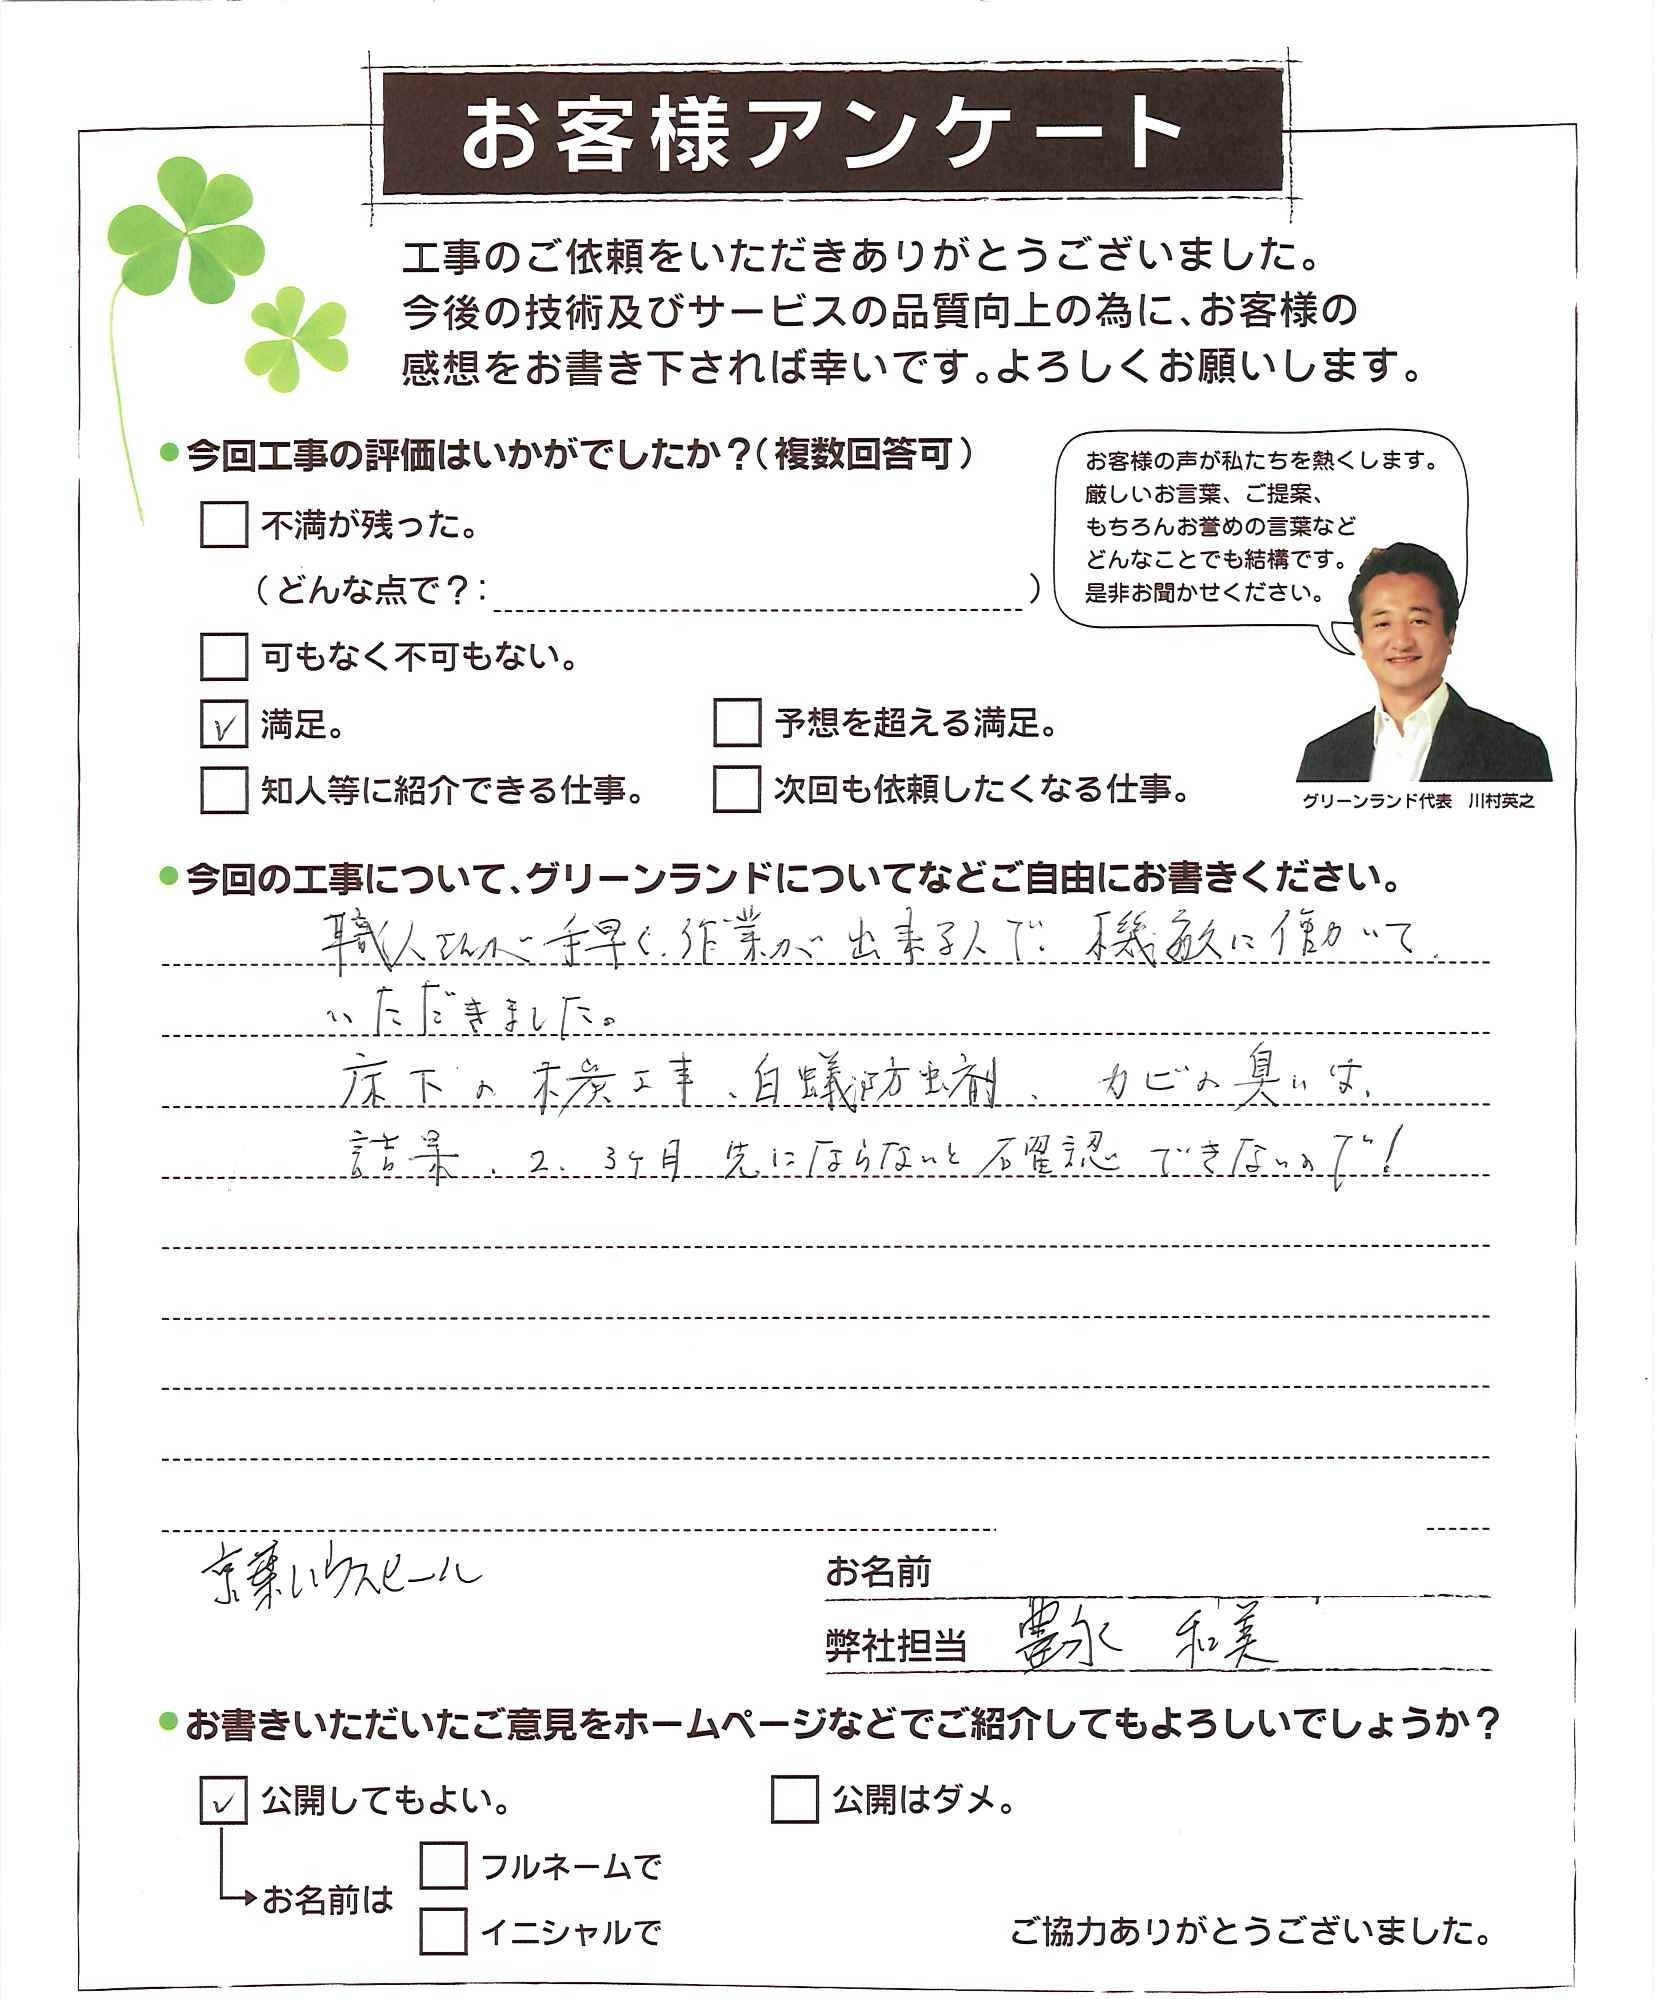 お客様アンケート
工事のご依頼をいただきありがとうございました。
今後の技術及びサービスの品質向上の為に、お客様の
感想をお書き下されば幸いです。よろしくお願いします。
●今回工事の評価はいかがでしたか？（複数回答可）
不満が残った。
（どんな点で？：　）
可もなく不可もない。
✓ 満足。
予想を超える満足。
知人等に紹介できる仕事。
次回も依頼したくなる仕事。
お客様の声が私たちを熱くします。
厳しいお言葉、ご提案、
もちろんお誉めの言葉など
どんなことでも結構です。
是非お聞かせください。
グリーンランド代表　川村英之
●今回の工事について、グリーンランドについてなどご自由にお書きください。
職人さんが手早く、作業が出来る人で、機敏に働いて
いただきました。
床下の木炭工事、白蟻防虫剤、カビの臭いは、
結果、2、3ヶ月先にならないと確認できないので！
お名前
京葉
弊社担当　豊永　和美
●お書きいただいたご意見をホームページなどでご紹介してもよろしいでしょうか？
✓ 公開してもよい。
公開はダメ。
お名前は
フルネームで
イニシャルで
ご協力ありがとうございました。